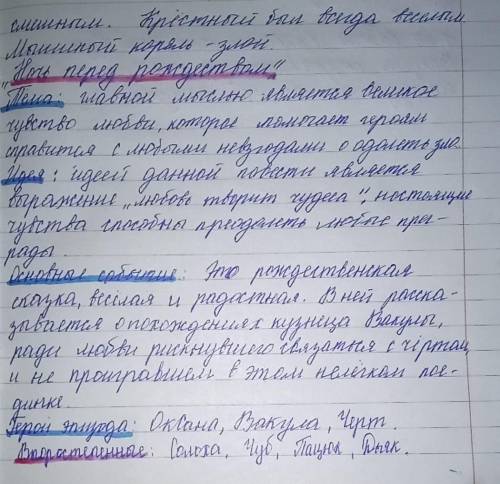 смешным. Крёстный был всегда весёлым
Мышиный король - злой.
"Ночь перед рождеством"
Тема: главной мыслью является великое
чувство любви, которое помогает героям
справится с любыми невзгодами и одолеть зло.
Идея: идеей данной повести является
выражение "любовь творит чудеса", настоящие
чувства способны преодолеть любые прег-
рады.
Основные события: Это рождественская
сказка, весёлая и радостная. В ней расска-
зывается о похождениях кузнеца Вакулы,
ради любви рискнувшего связаться с чёртом,
и не проигравшем в этом нелёгком пое-
динке.
Герои эпизода: Оксана, Вакула, Черт.
Второстепенные: Солоха, Чуб, Пацюк, Дьяк.